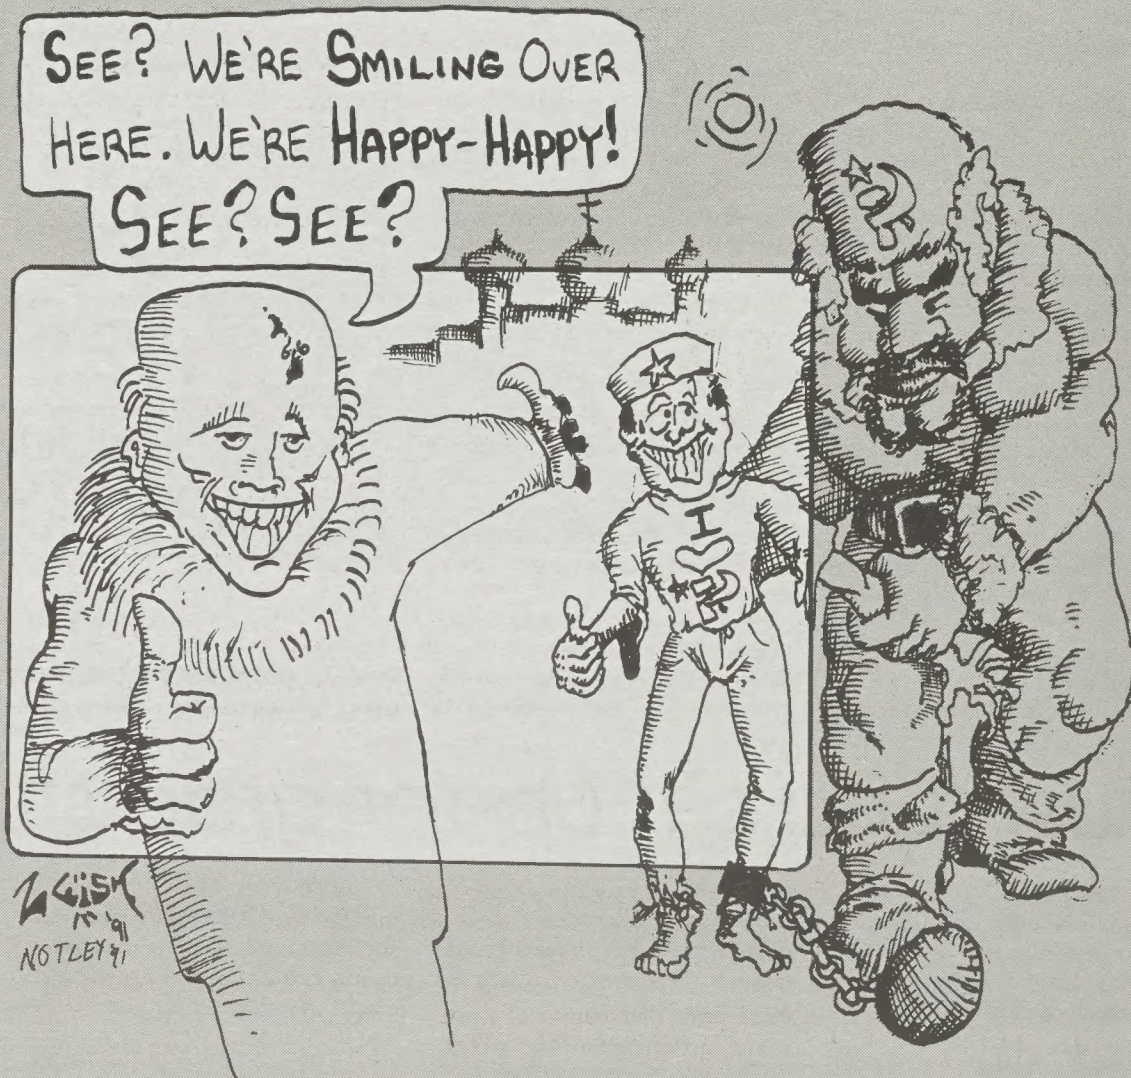 SEE? WE'RE SMILING OVER
HERE. WE'RE HAPPY-HAPPY!
SEE? SEE?
I
'91
NOTLEY 91